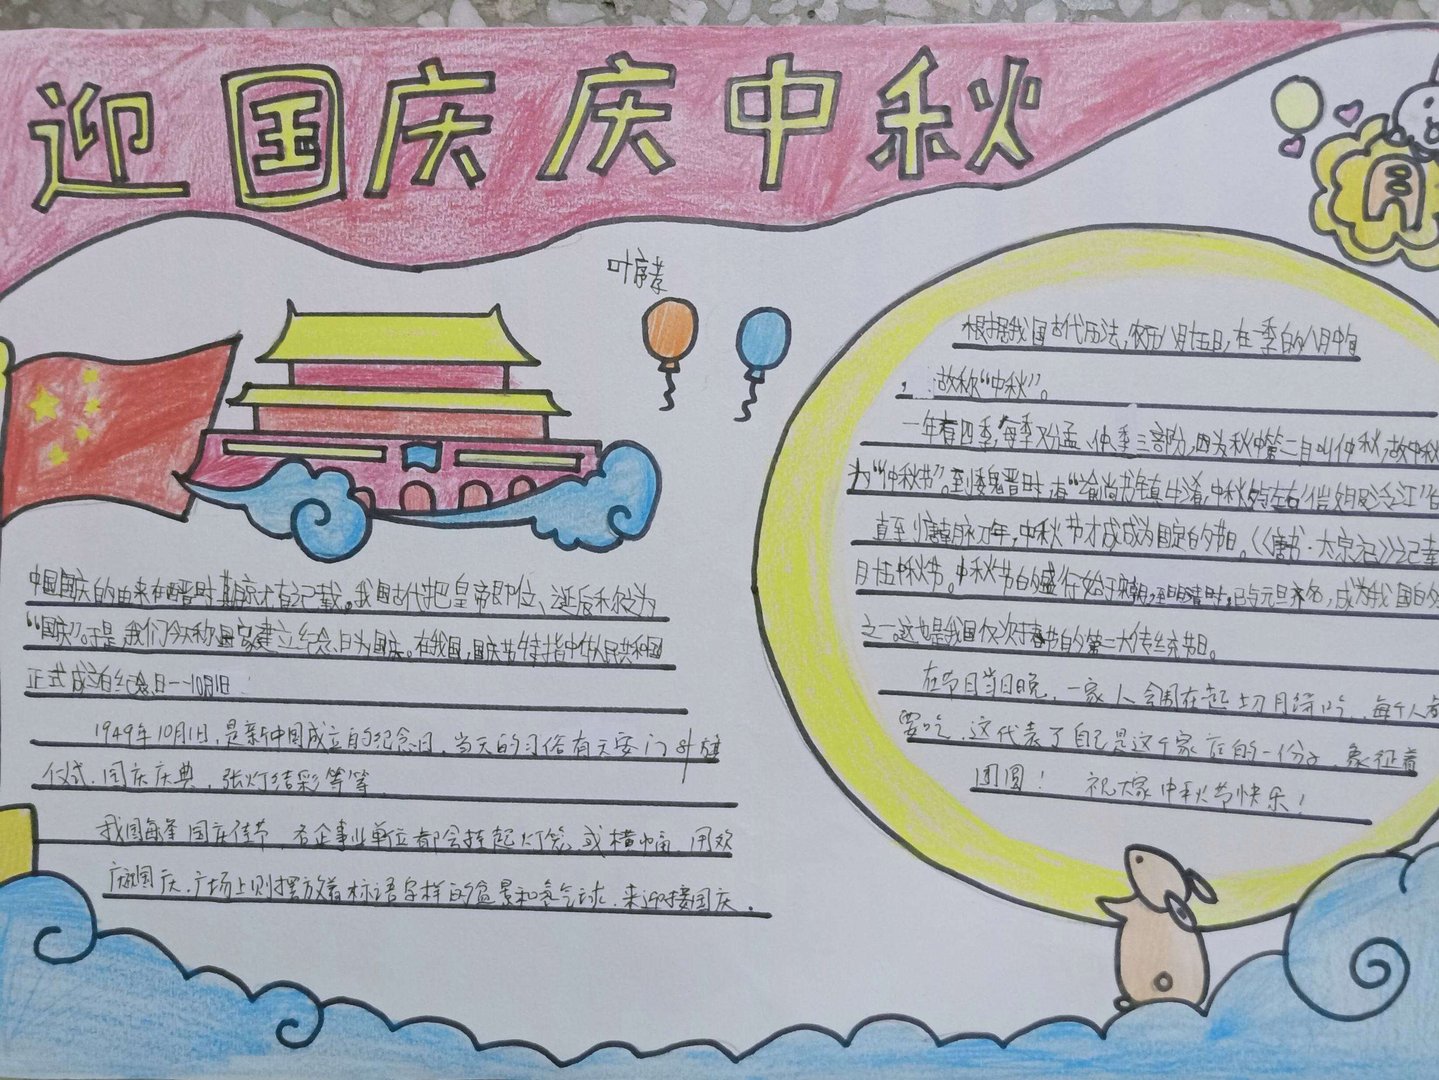 迎国庆庆中秋
叶序孝
中国国庆的由来在晋时期就才有记载。我国古代把皇帝即位、诞辰称为
“国庆”。于是,我们今天称国家建立纪念日为国庆。在我国,国庆节特指中华人民共和国
正式成立纪念日--10月1日
1949年10月1日,是新中国成立的纪念日,当天的习俗有天安门升旗
仪式.国庆庆典.张灯结彩等等
我国每逢国庆佳节.各企事业单位都会挂起灯笼或横幅.用欢
庆国庆.广场上则摆放着标语字样的盆景和氢气球.来迎接国庆.
月
根据我国古代历法,农历八月十五日,在一季的八月中旬
,故称“中秋”。
一年有四季,每季又分孟、仲、季三部分,因为秋中第二月叫仲秋,故中秋
为“仲秋节”。到魏晋时,有“谕尚书镇牛渚,中秋夕与左右微服泛江”
直至唐朝初年,中秋节才成为固定的节日。《唐书·太宗记》记载
月十五中秋节。中秋节的盛行始于宋朝,至明清时,已与元旦齐名,成为我国的
之一。这也是我国仅次于春节的第二大传统节日。
在节日当日晚,一家人会围在一起切月饼吃.每个人都
要吃.这代表了自己是这个家庭的一份子.象征着
团圆! 祝大家中秋节快乐!